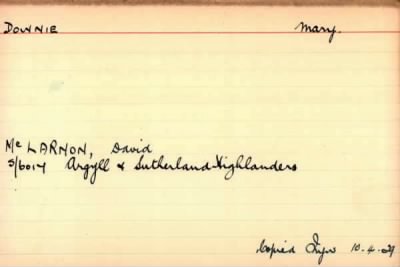 DOWNIE Mary.
Mc LARNON, David
S/6017 Argyll & Sutherland Highlanders
Copied 10-4-29